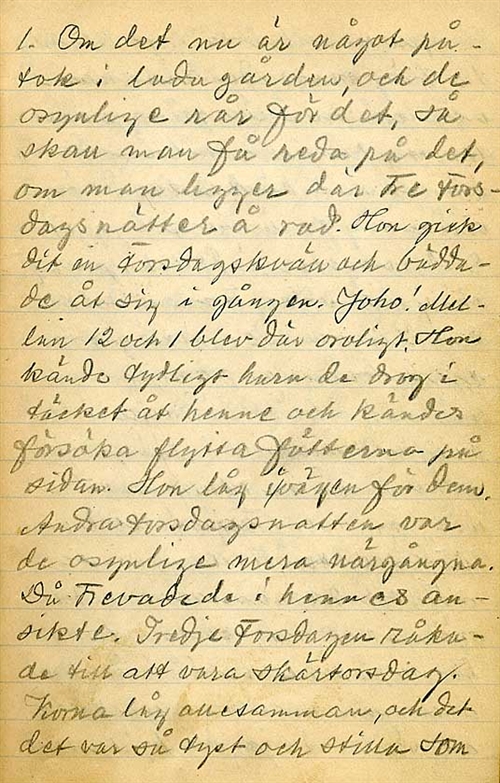 1. Om det nu är något på-
tok i ladugården, och de
osynlige rår för det, så
skall man få reda på det,
om man ligger där tre tors-
dagsnätter å rad. Hon gick
dit en torsdagskväll och bädda-
de åt sig i gången. Joho! Mel-
lan 12 och 1 blev där oroligt. Hon
kände tydligt huru de drog i
täcket åt henne och kändes
försöka flytta fötterna på
sidan. Hon låg i vägen för dem.
Andra torsdagsnatten var
de osynlige mera närgångna.
Då trevade de i hennes an-
sikte. Tredje torsdagen råka-
de till att vara skärtorsdag.
Korna låg allesamman, och det
det var så tyst och stilla som